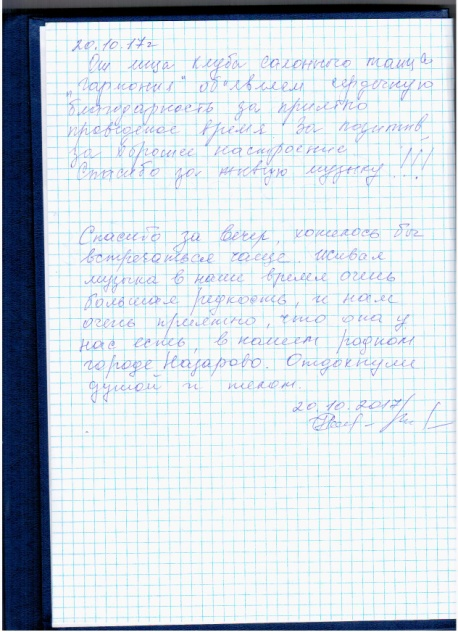 20.10.17г
От лица клуба салонного танца
"Гармония" объявляем сердечную
благодарность за приятно
проведеное время. За позитив,
за хорошее настроение
Спасибо за живую музыку!!!
Спасибо за вечер, хотелось бы
встречаться чаще. Живая
музыка в наше время очень
большая редкость, и нам
очень приятно, что она у
нас есть, в нашем родном
городе Назарово. Отдохнули
душой и телом.
20.10.2017